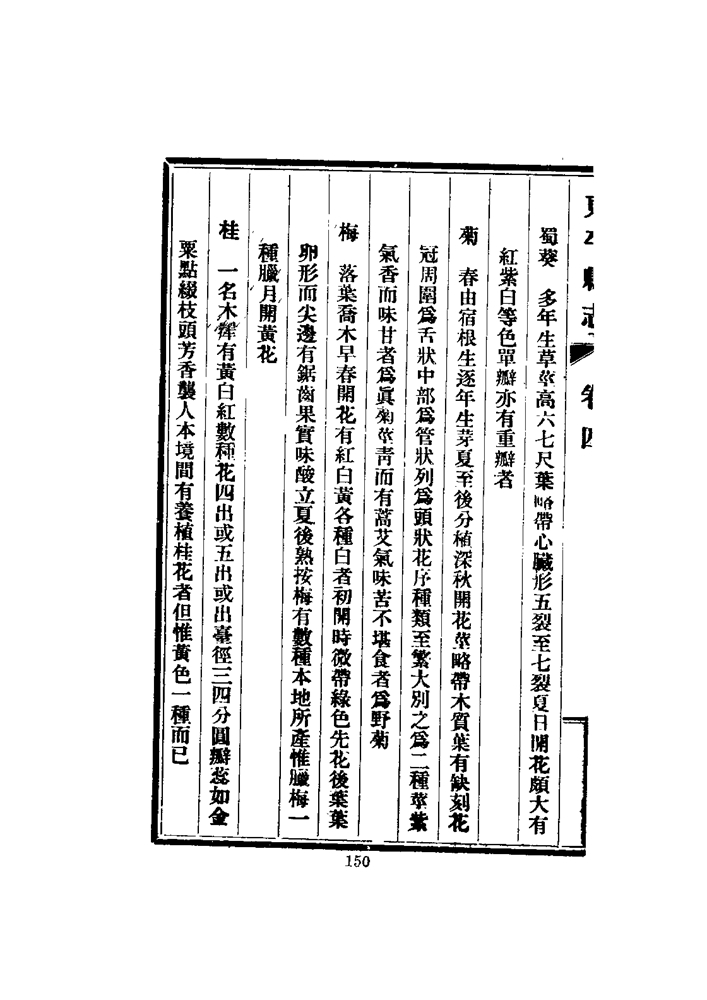 縣志
卷四
蜀葵　多年生草莖高六七尺葉略帶心臟形五裂至七裂夏日開花頗大有
紅紫白等色單瓣亦有重瓣者
菊　春由宿根生逐年生芽夏至後分植深秋開花莖略帶木質葉有缺刻花
冠周圍爲舌狀中部爲管狀列爲頭狀花序種類至繁大別之爲二種莖紫
氣香而味甘者爲眞菊莖靑而有蒿艾氣味苦不堪食者爲野菊
梅　落葉喬木早春開花有紅白黃各種白者初開時微帶綠色先花後葉葉
卵形而尖邊有鋸齒果實味酸立夏後熟按梅有數種本地所產惟臘梅一
種臘月開黃花
桂　一名木犀有黃白紅數種花四出或五出或出臺徑三四分圓瓣蕊如金
粟點綴枝頭芳香襲人本境間有養植桂花者但惟黃色一種而已
150